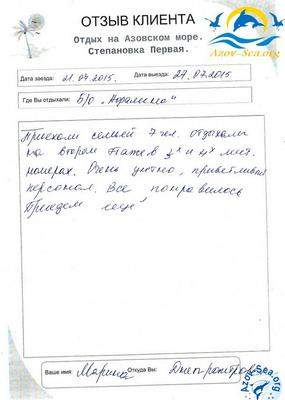 ОТЗЫВ КЛИЕНТА
Отдых на Азовском море.
Степановка Первая.
Azov-Sea.org
Дата заезда: 21.07.2015. Дата выезда: 27.07.2015
Где Вы отдыхали: Б/О „
Приехали семьей 7 чел. отдыхали
на втором этаже в 3х и 4х мест.
номерах. Очень уютно, приветливый
персонал. Все понравилось
Приедем еще!
Ваше имя: Марина Откуда Вы: Днепропетровск
Azov-Sea.org